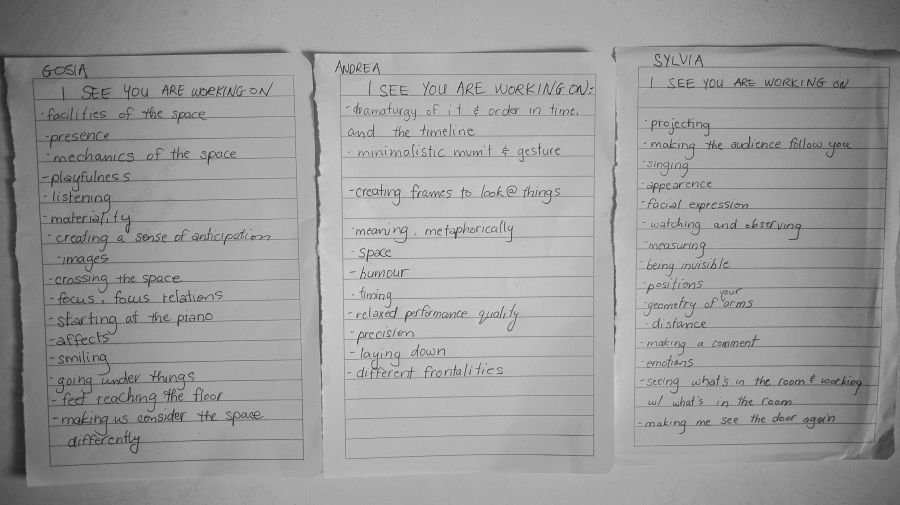 GOSIA
I SEE YOU ARE WORKING ON
- facilities of the space
- presence
- mechanics of the space
- playfulness
- listening
- materiality
- creating a sense of anticipation
- images
- crossing the space
- focus, focus relations
- starting at the piano
- affects
- smiling
- going under things
- feet reaching the floor
- making us consider the space
differently
ANDREA
I SEE YOU ARE WORKING ON:
- dramaturgy of it & order in time,
and the timeline
- minimalistic mvm't & gesture
- creating frames to look @ things
- meaning, metaphorically
- space
- humour
- timing
- relaxed performance quality
- precision
- laying down
- different frontalities
SYLVIA
I SEE YOU ARE WORKING ON
- projecting
- making the audience follow you
- singing
- appearence
- facial expression
- watching and observing
- measuring
- being invisible
- positions
- geometry of your arms
- distance
- making a comment
- emotions
- seeing what's in the room & working
w/ what's in the room
- making me see the door again